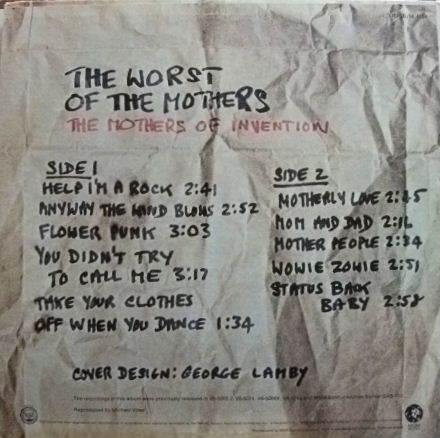 THE WORST
OF THE MOTHERS
THE MOTHERS OF INVENTION
SIDE 1
HELP I'M A ROCK 2:41
ANYWAY THE WIND BLOWS 2:52
FLOWER PUNK 3:03
YOU DIDN'T TRY
TO CALL ME 3:17
TAKE YOUR CLOTHES
OFF WHEN YOU DANCE 1:34
SIDE 2
MOTHERLY LOVE 2:45
MOM AND DAD 2:16
MOTHER PEOPLE 2:34
WOWIE ZOWIE 2:51
STATUS BACK
BABY 2:58
COVER DESIGN: GEORGE LAMBY
The recordings in this album were previously released in
Reproduced by Michael